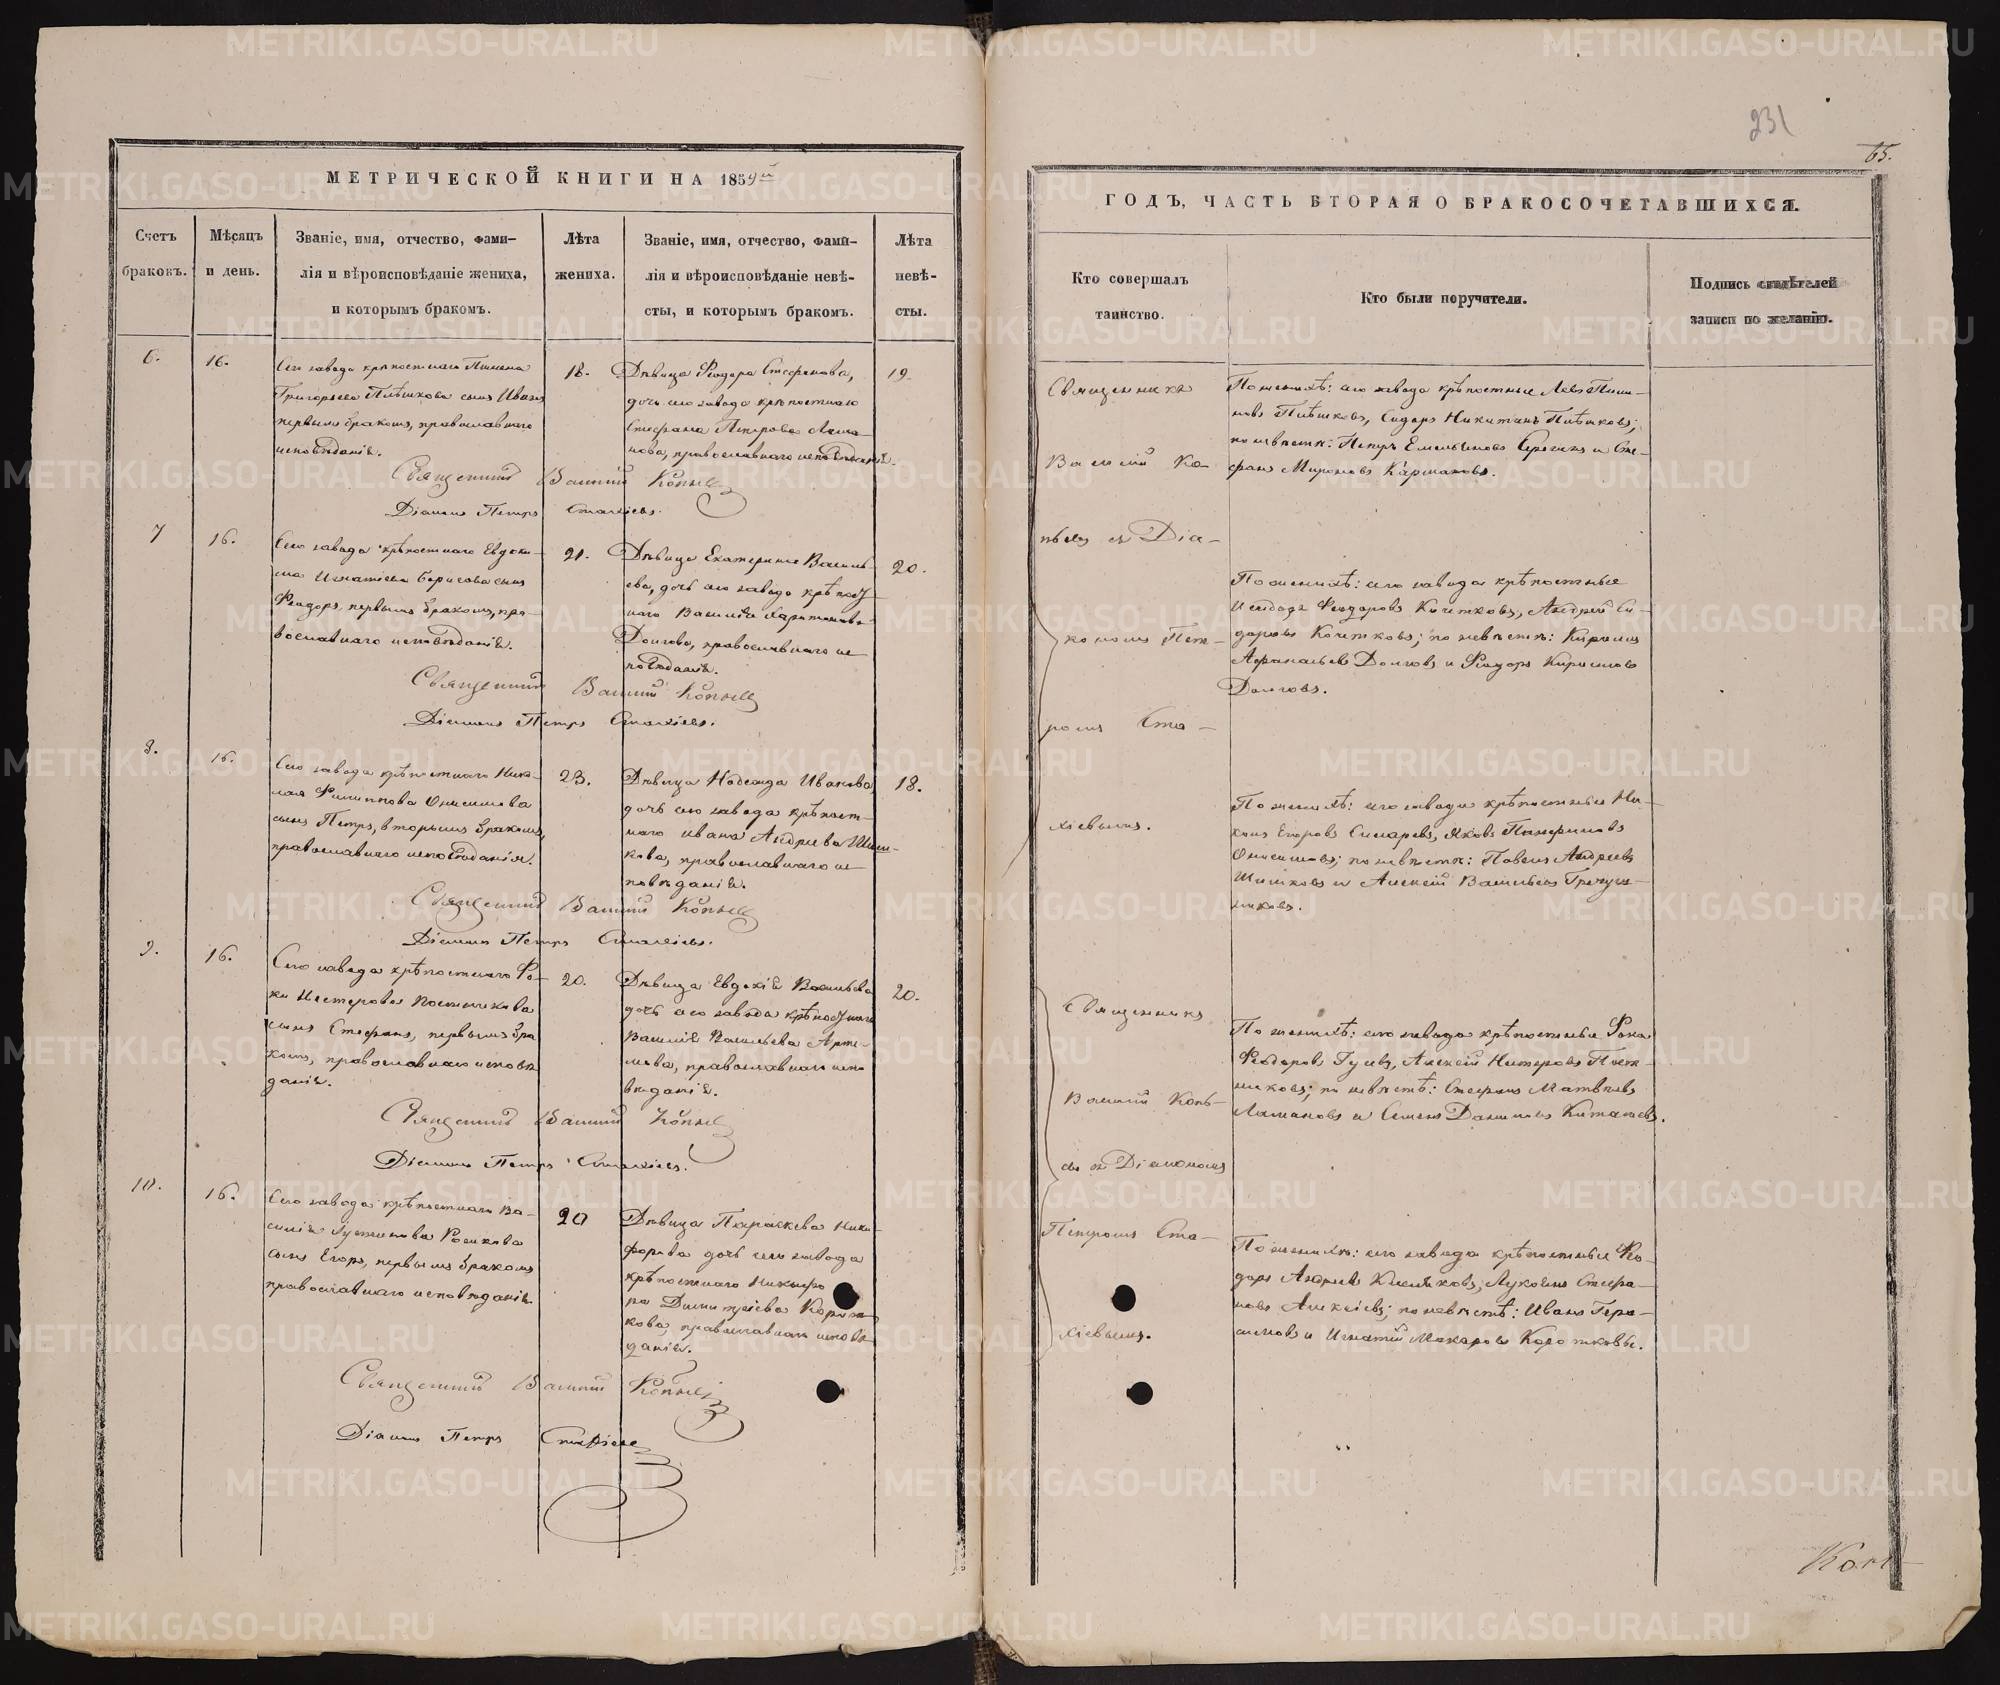 МЕТРИЧЕСКОЙ КНИГИ НА 1859й
Счетъ браковъ.
Мѣсяцъ и день.
Званіе, имя, отчество, фами-
лія и вѣроисповѣданіе жениха,
и которымъ бракомъ.
Лѣта жениха.
Званіе, имя, отчество, фами-
лія и вѣроисповѣданіе невѣ-
сты, и которымъ бракомъ.
Лѣта невѣ-
сты.
6.
16.
Сего завода крѣпостнаго Пимена
Григорьева Пѣшкова сынъ Иванъ
первымъ бракомъ, православнаго
исповѣданія.
18.
Дѣвица Ѳеодора Стефанова,
дочь сего завода крѣпостнаго
Стефана Петрова
нова, православнаго исповѣданія.
19.
Священникъ Василій Копы
Діаконъ Петръ Стахіевъ.
7
16.
Сего завода крѣпостнаго Евдоки-
ма Игнатіева Борисова сынъ
Ѳеодоръ, первымъ бракомъ, пра-
вославнаго исповѣданія.
21.
Дѣвица Екатерина Василь-
ева, дочь сего завода крѣпост-
наго Василія Харитонова
Долгова, православнаго ис-
повѣданія.
20.
Священникъ Василій
Діаконъ Петръ Стахіевъ.
8.
16.
Сего завода крѣпостнаго Нико-
лая Филиппова Онисимова
сынъ Петръ, вторымъ бракомъ,
православнаго исповѣданія.
23.
Дѣвица Надежда Иванова,
дочь сего завода крѣпост-
наго Ивана Андреева Шиш-
кова, православнаго ис-
повѣданія.
18.
Священникъ Василій
Діаконъ Петръ Стахіевъ.
9.
16.
Сего завода крѣпостнаго Ѳо-
ки Нестерова Постникова
сынъ Стефанъ, первымъ бра-
комъ, православнаго исповѣ-
данія.
20.
Дѣвица Евдокія Васильева
дочь сего завода крѣпостнаго
Василія Васильева Арте-
мова, православнаго испо-
вѣданія.
20.
Священникъ Василій
Діаконъ Петръ Стахіевъ.
10.
16.
Сего завода крѣпостнаго Ва-
силія Устинова
сынъ Егоръ, первымъ бракомъ
православнаго исповѣданія.
20
Дѣвица Параскева Ники-
форова дочь сего завода
крѣпостнаго Никифо-
ра Димитріева Корот-
кова, православнаго исповѣ-
данія.
Священникъ Василій
Діаконъ Петръ Стахіевъ
231
65.
ГОДЪ, ЧАСТЬ ВТОРАЯ О БРАКОСОЧЕТАВШИХСЯ.
Кто совершалъ
таинство.
Кто были поручители.
Подпись свидѣтелей
записи по желанію.
Священникъ
Василій Ко-
пьевъ съ Діа-
кономъ Пет-
ромъ Ста-
хіевымъ.
По женихѣ: сего завода крѣпостные Левъ Пиме-
новъ Пѣшковъ, Сидоръ Никитинъ Пѣшковъ;
по невѣстѣ: Петръ Емельяновъ и Сте-
фанъ Мироновъ Каршановъ.
По женихѣ: сего завода крѣпостные
Ѳеодоровъ Кочтковъ, Андрей Си-
доровъ Кочтковъ; по невѣстѣ: Кириллъ
Афанасьевъ Долговъ и Ѳедоръ Кириловъ
Долговъ.
По женихѣ: сего завода крѣпостные Ни-
конъ Егоровъ Яковъ Панфиловъ
Онисимовъ; по невѣстѣ: Павелъ Андреевъ
Шишковъ и Алексѣй Васильевъ Гречуш-
никовъ.
Священникъ
Василій Копь-
евъ съ Діакономъ
Петромъ Ста-
хіевымъ.
По женихѣ: сего завода крѣпостные Ѳока
Ѳеодоровъ Гусевъ, Алексѣй Нестеровъ Пост-
никовъ; по невѣстѣ: Стефанъ Матвѣевъ
Ламановъ и Семенъ Даниловъ Китаевъ.
По женихѣ: сего завода крѣпостные Ѳео-
доръ Андреевъ Лукоянъ Стефа-
новъ Алексѣевъ; по невѣстѣ: Иванъ Гера-
симовъ и Игнатій Макаровъ Коротковы.
METRIKI.GASO-URAL.RU